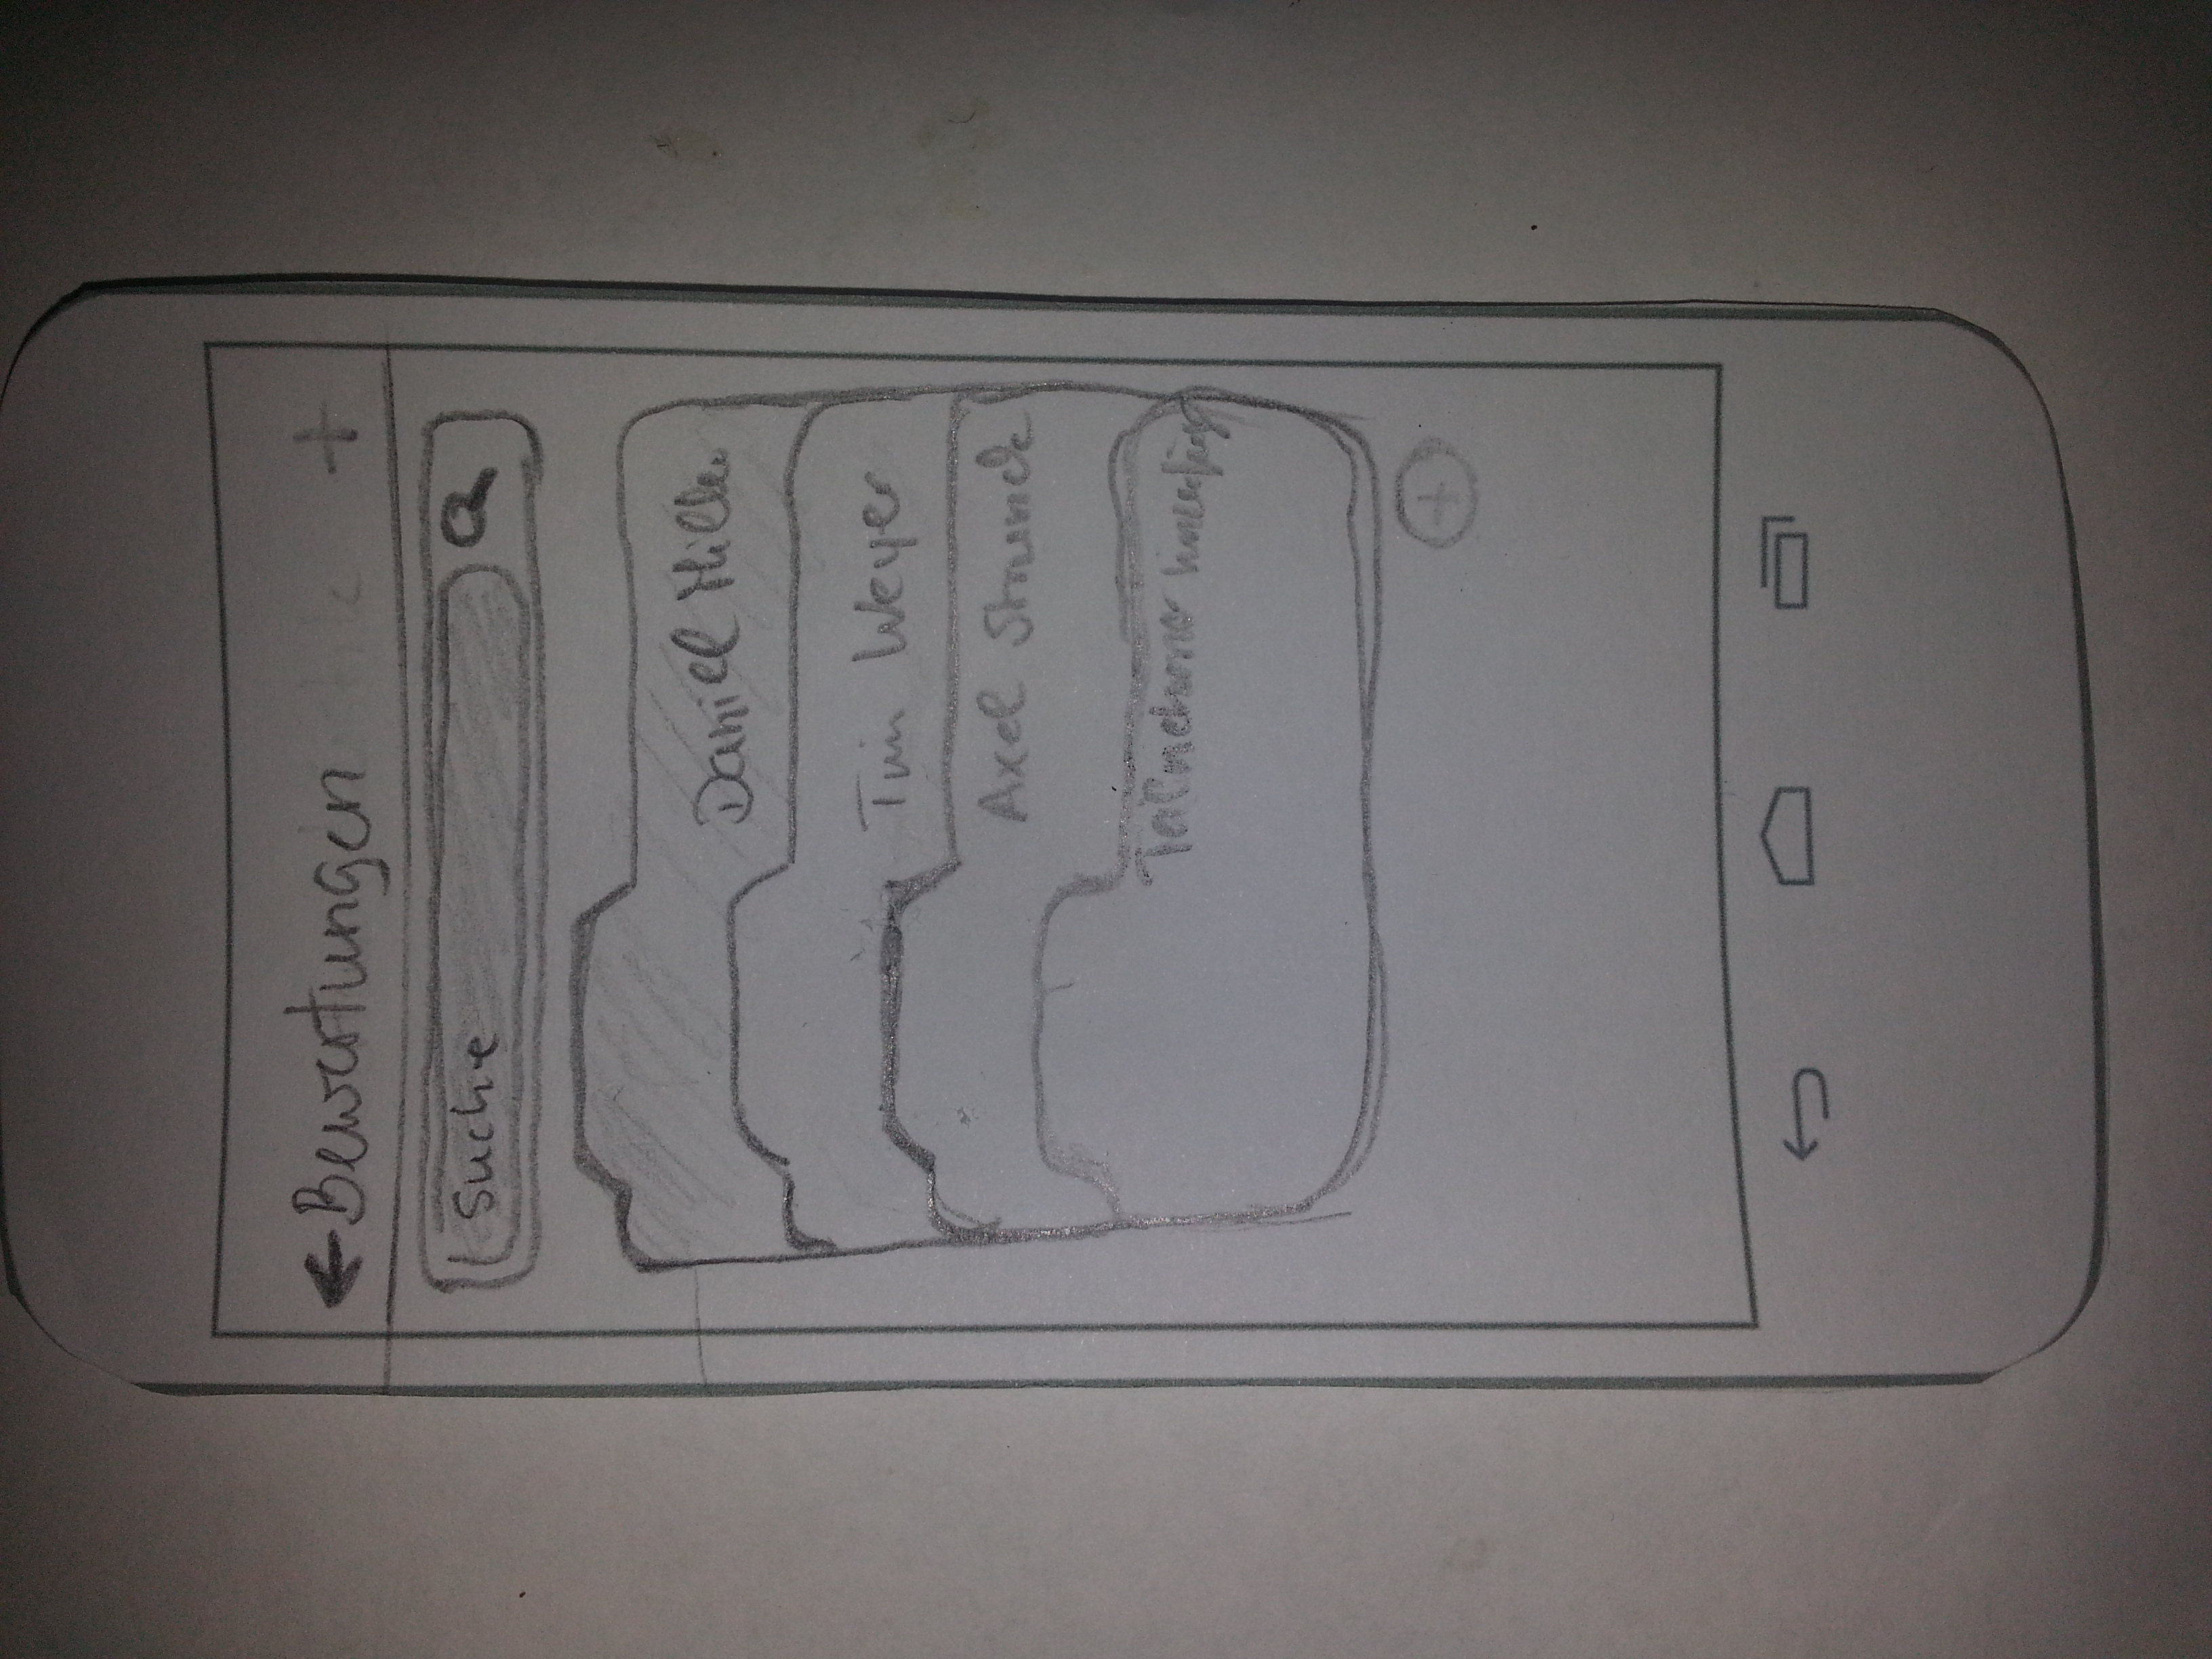 ← Bewertungen +
Suche
Daniel Miller
Tim Weyer
Axel Strunde
Teilnehmer hinzufügen
+